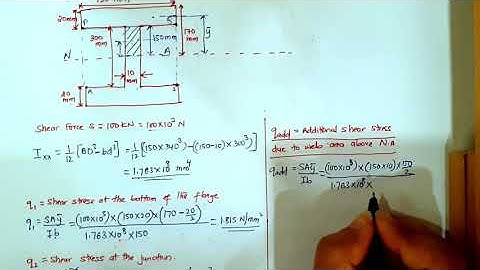 P
S
20mm
300
mm
150mm
170
mm
ȳ
N
A
10
mm
20
mm
R
S
Shear force S = 100KN = 100×10³ N
Ixx = 1/12 [BD³-bd³] = 1/12 [150×340³) - (150-10)×300³)]
= 1.763×10⁸ mm⁴
q1 = Shear stress at the bottom of the flange
q1 = SAȳ/Ib = (100×10³)×(150×20)×(170-20/2) / 1.763×10⁸×150 = 1.815 N/mm²
q2 = Shear stress at the junction.
qadd = Additional shear stress
due to web area above N.A
qadd = SAȳ/Ib = (100×10³)×(150×10)×150/2 / 1.763×10⁸×